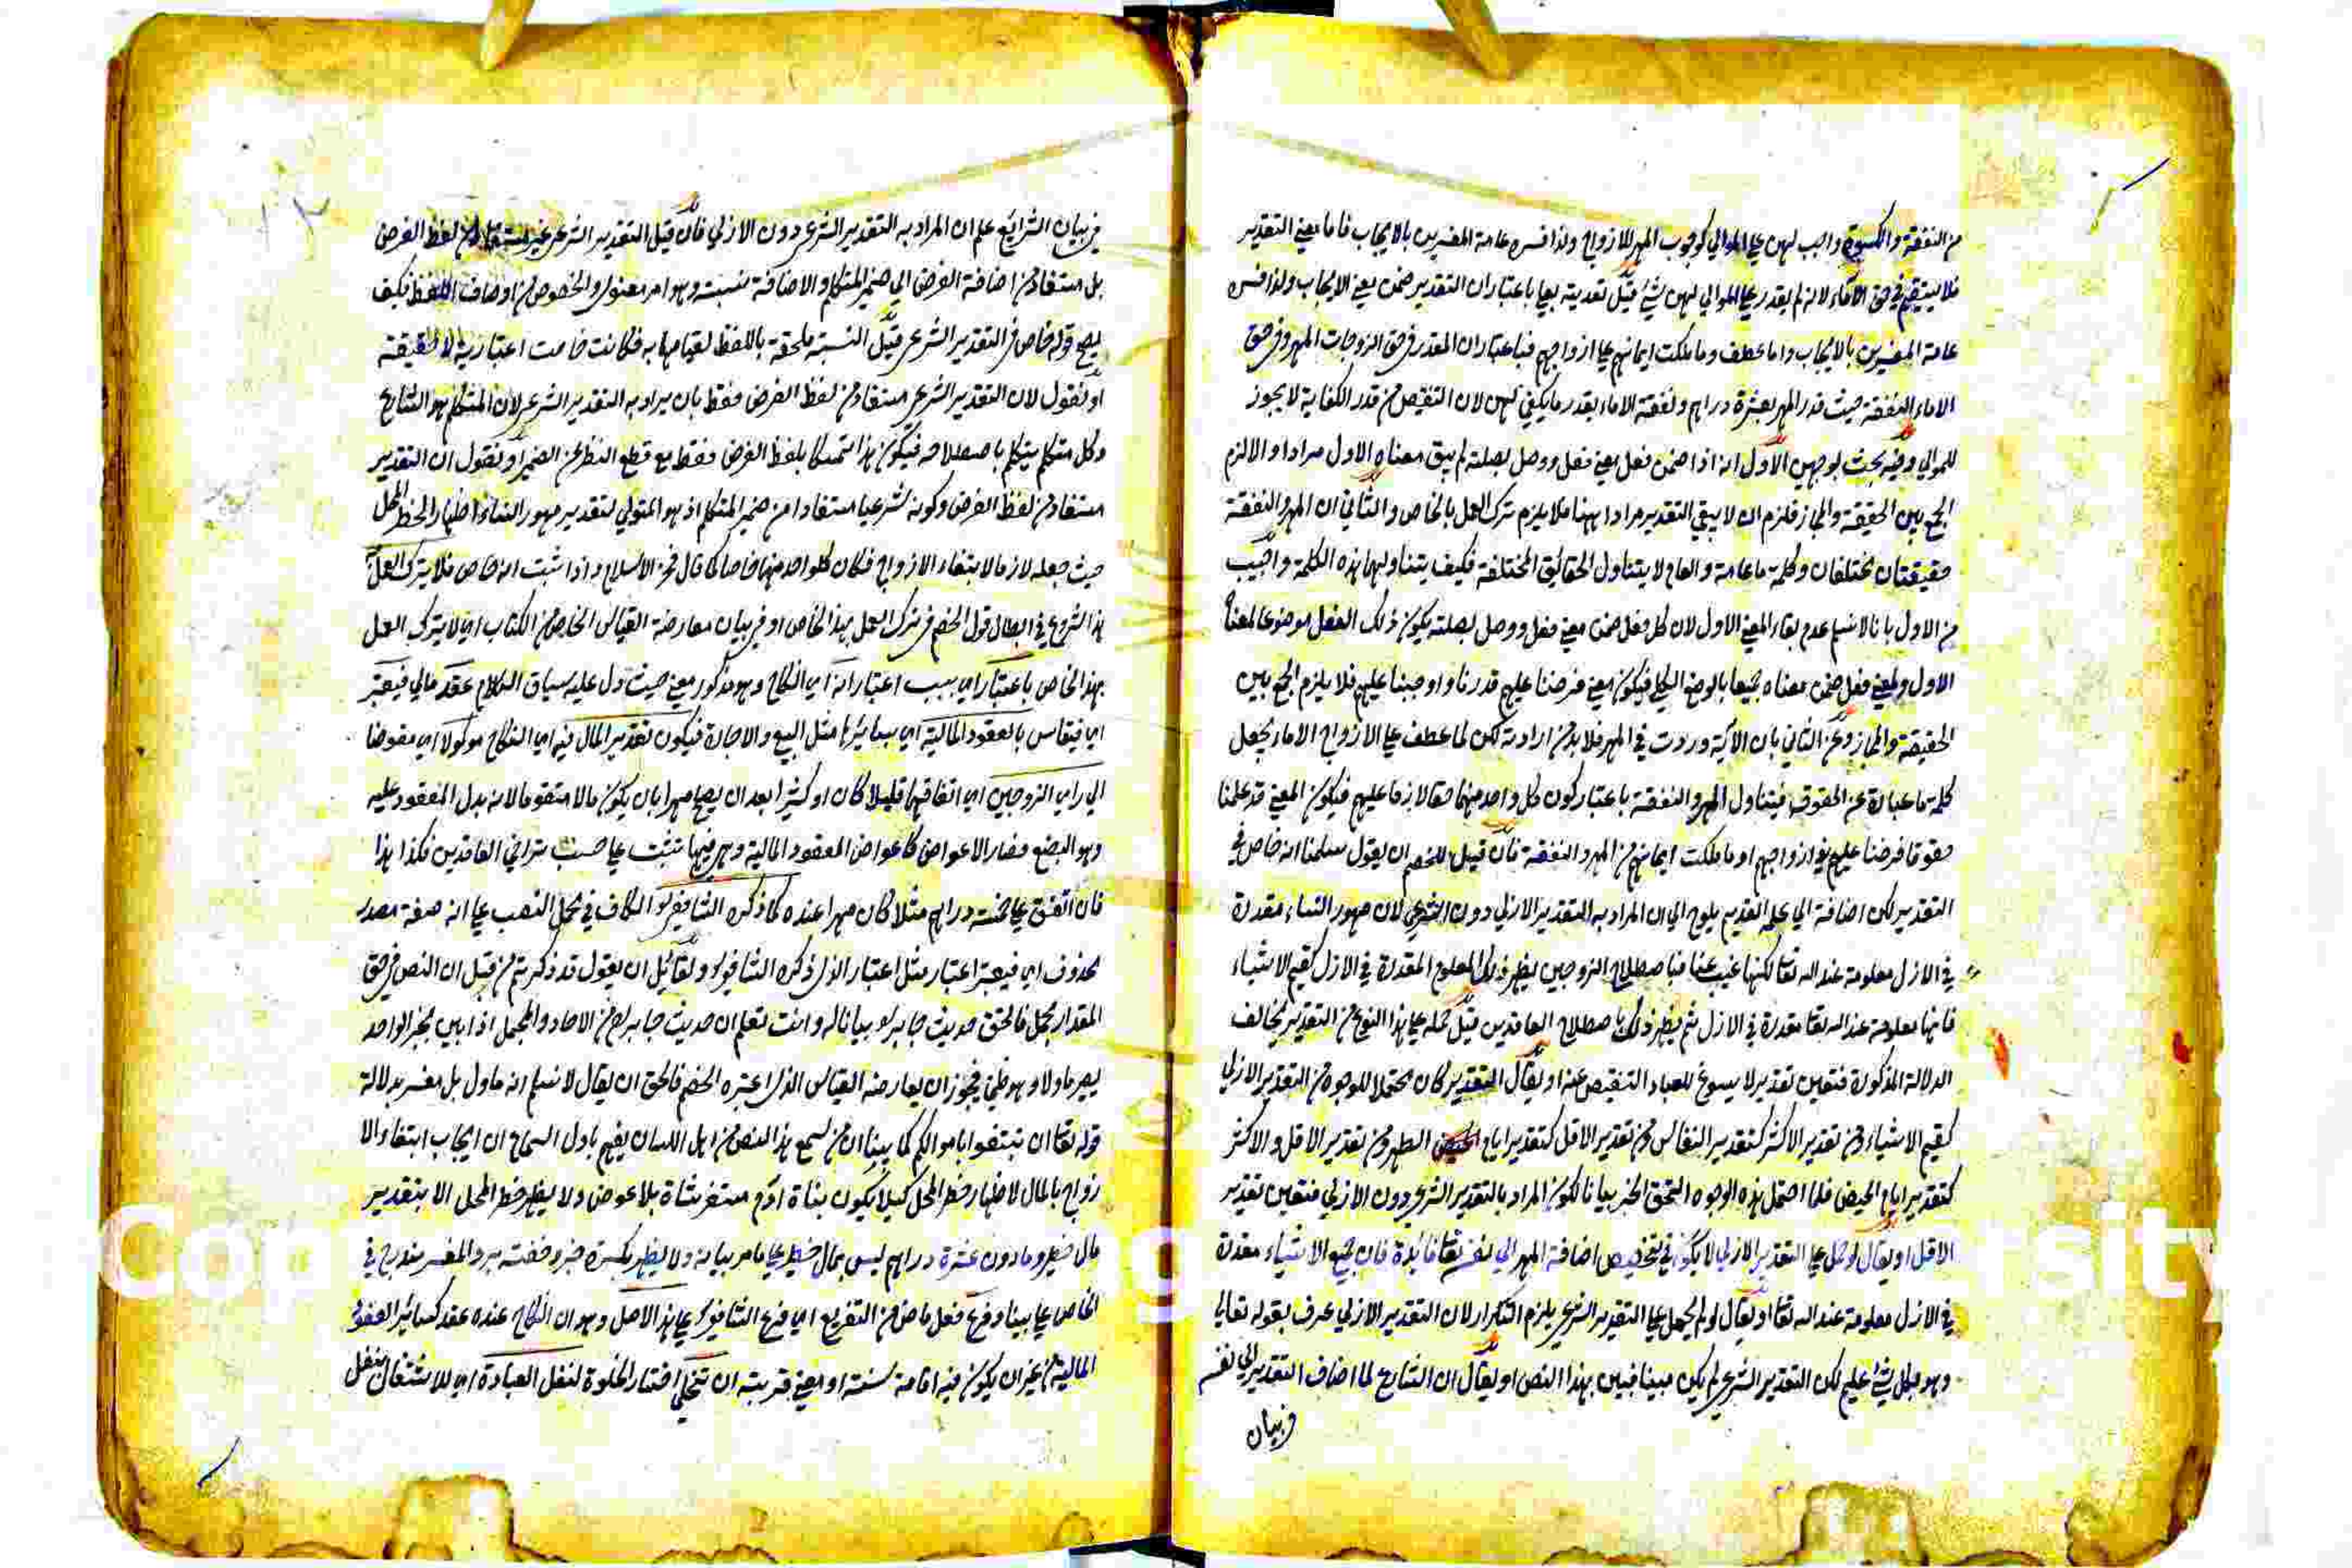 من النفقة والكسوة واجب لهن على الموالي كوجوب المهر للازواج ولذا فسره عامة المفسرين بالايجاب فاما معنى التقدير
فلا يستقيم في حق الاماء لانه لم يقدر على الموالي لهن شئ قيل تعديته بعلى باعتبار ان التقدير ضمن معنى الايجاب ولذا فسره
عامة المفسرين بالايجاب واما عطف وما ملكت ايمانهم على ازواجهم فباعتبار ان المقدر في حق الزوجات المهر وفي حق
الاماء النفقة حيث قدر المهر بعشرة دراهم ونفقة الاماء بقدر ما يكفي لهن لان التنقيص من قدر الكفاية لا يجوز
للموالي وفيه بحث بوجهين الاول انه اذا ضمن فعل معنى فعل ووصل بصلته لم يبق معناه الاول مرادا والا لزم
الجمع بين الحقيقة والمجاز فلزم ان لا يبقى التقدير مرادا ههنا فلا يلزم ترك العمل بالخاص والثاني ان المهر والنفقة
حقيقتان مختلفتان وكلمة ما عامة والعام لا يتناول الحقائق المختلفة فكيف يتناولهما هذه الكلمة واجيب
عن الاول بانا لا نسلم عدم بقاء المعنى الاول لان كل فعل ضمن معنى فعل ووصل بصلته يكون ذلك الفعل موضوعا لمعناه
الاول ولمعنى فعل ضمن معناه جميعا بالوضع الكلي فيكون معنى فرضنا عليهم قدرنا واوجبنا عليهم فلا يلزم الجمع بين
الحقيقة والمجاز وعن الثاني بان الآية وردت في المهر فلا بد من ارادته لكن لما عطف على الازواج الاماء يجعل
كلمة ما عبارة عن الحقوق فيتناول المهر والنفقة باعتبار كون كل واحد منهما حقا لازما عليهم فيكون المعنى قد علمنا
حقوقا فرضنا عليهم في ازواجهم او ما ملكت ايمانهم من المهر والنفقة فان قيل للخصم ان يقول سلمنا انه خاص في
التقدير لكن اضافة الى علمه القديم يلوح الى ان المراد به التقدير الازلي دون الشرعي لان مهور النساء مقدرة
في الازل معلومة عند الله تعا لكنها غيب عنا فباصطلاح الزوجين يظهر ذلك المعلوم المقدرة في الازل كقيم الاشياء
فانها معلومة عند الله تعا مقدرة في الازل ثم يظهر ذلك باصطلاح العاقدين قيل حمله على هذا النوع من التقدير يخالف
الدلالة المذكورة فتعين تقدير لا يسوغ للعباد التنقيص عنه او يقال التقدير كان محتملا للوجوه من التقدير الازلي
كقيم الاشياء ومن تقدير الاكثر كتقدير النفاس ومن تقدير الاقل كتقدير ايام الطهر ومن تقدير الاقل والاكثر
كتقدير ايام الحيض فلما احتمل هذه الوجوه التحق الخبر بيانا لكون المراد بالتقدير الشرعي دون الازلي فتعين تقدير
الاقل او يقال لو حمل على التقدير الازلي لا يكون في تخصيص اضافة المهر الى نفسه تعا فائدة فان جميع الاشياء مقدرة
في الازل معلومة عند الله تعا او يقال لو لم يحمل على التقدير الشرعي يلزم التكرار لان التقدير الازلي عرف بقوله تعالى
وهو بكل شئ عليم لكن التقدير الشرعي لم يكن مبينا فبين بهذا النص او يقال ان الشارع لما اضاف التقدير الى نفسه
في بيان
في بيان الشرايع علم ان المراد به التقدير الشرعي دون الازلي فان قيل التقدير الشرعي غير مستفاد من لفظ الفرض
بل مستفاد من اضافة الفرض الى ضمير المتكلم والاضافة نسبته وهو امر معنوي والخصوص من اوصاف اللفظ فكيف
يصح قوله خاص في التقدير الشرعي قيل النسبة ملحقة باللفظ لقيامها به فكانت خاصة اعتبارية لا حقيقة
او نقول لان التقدير الشرعي مستفاد من لفظ الفرض فقط بان يراد به التقدير الشرعي لان المتكلم هو الشارع
وكل متكلم يتكلم باصطلاحه فيكون هذا تمسكا بلفظ الفرض فقط مع قطع النظر عن الضمير او نقول ان التقدير
مستفاد من لفظ الفرض وكونه شرعيا مستفادا من ضمير المتكلم اذ هو المتولي لتقدير مهور النساء اظهارا لخطر المحل
حيث جعله لازما لابتغاء الازواج فكان كل واحد منهما خاصا كما قال فخر الاسلام واذا ثبت انه خاص فلا يترك العمل
هذا شروع في ابطال قول الخصم في ترك العمل بهذا الخاص او في بيان معارضة القياس الخاص من الكتاب اي لا يترك العمل
بهذا الخاص باعتبار اي بسبب اعتبار انه اي النكاح وهو مذكور معنى حيث دل عليه سياق الكلام عقد مالي فيعتبر
اي فيقاس بالعقود المالية اي بسائرها مثل البيع والاجارة فيكون تقدير المال فيه اي النكاح موكولا اي مفوضا
الى راي الزوجين اي اتفاقهما قليلا كان او كثيرا بعد ان يصح مهرا بان يكون مالا متقوما لانه بدل المعقود عليه
وهو البضع فصار الاعواض كاعواض العقود المالية وهي فيها تثبت على حسب تراضي العاقدين فكذا هذا
فان اتفق على خمسة دراهم مثلا كان مهرا عنده كما ذكره الشافعي الكاف في محل النصب على انه صفة مصدر
محذوف اي فيعتبر اعتبار مثل اعتبار الذي ذكره الشافعي ولقائل ان يقول قد ذكرتم من قبل ان النص في حق
المقدار مجمل فالتحق حديث جابر بيانا له وانت تعلم ان حديث جابر من الاحاد والمجمل اذا بين بخبر الواحد
يصير ماولا وهو ظني فيجوز ان يعارضه القياس الذي اعتبره الخصم فالحق ان يقال لا نسلم انه ماول بل مفسر بدلالة
قوله تعا ان تبتغوا باموالكم كما بينا ان من سمع هذا النص من اهل اللسان يفهم باول السماع ان ايجاب ابتغاء الا
زواج بالمال لاظهار خطر المحل كيلا يكون بنات آدم مستفرشاة بلا عوض ولا يظهر خطر المحل الا بتقدير
مال خطير وما دون عشرة دراهم ليس بمال خطير على ما مر بيانه ولا يظهر بكسرة خبز وحفنة بر والمفسر مندرج في
الخاص على بينا وفرع فعل ماض من التفريع اي فرع الشافعي على هذا الاصل وهو ان النكاح عنده عقد كسائر العقود
المالية من غير ان يكون فيه اقامة سنة او معنى قربته ان تتخلى اختيار الخلوة لنفل العبادة اي للاشتغال بنفل